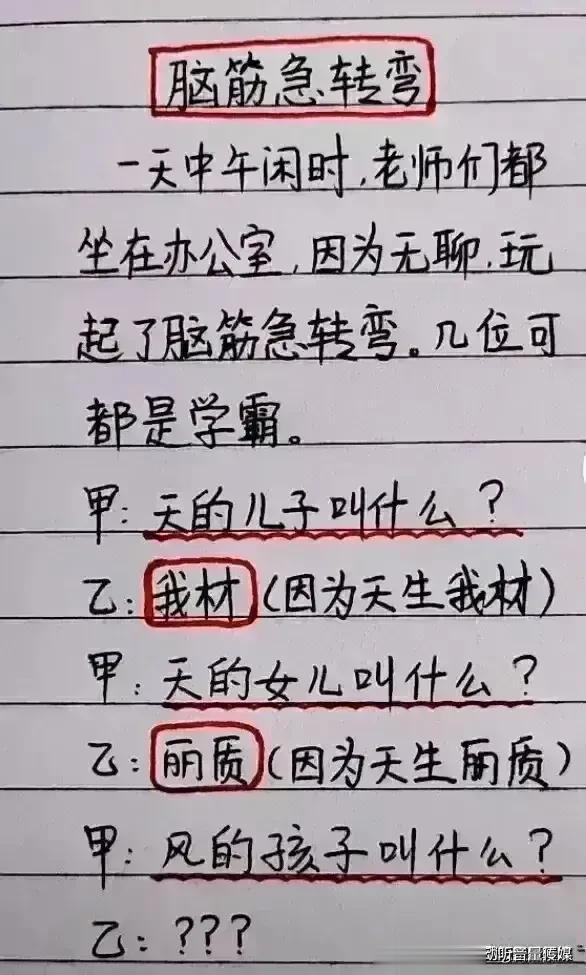 脑筋急转弯
一天中午闲时,老师们都
坐在办公室,因为无聊,玩
起了脑筋急转弯。几位可
都是学霸。
甲:天的儿子叫什么?
乙:我材(因为天生我材)
甲:天的女儿叫什么?
乙:丽质(因为天生丽质)
甲:风的孩子叫什么?
乙:???